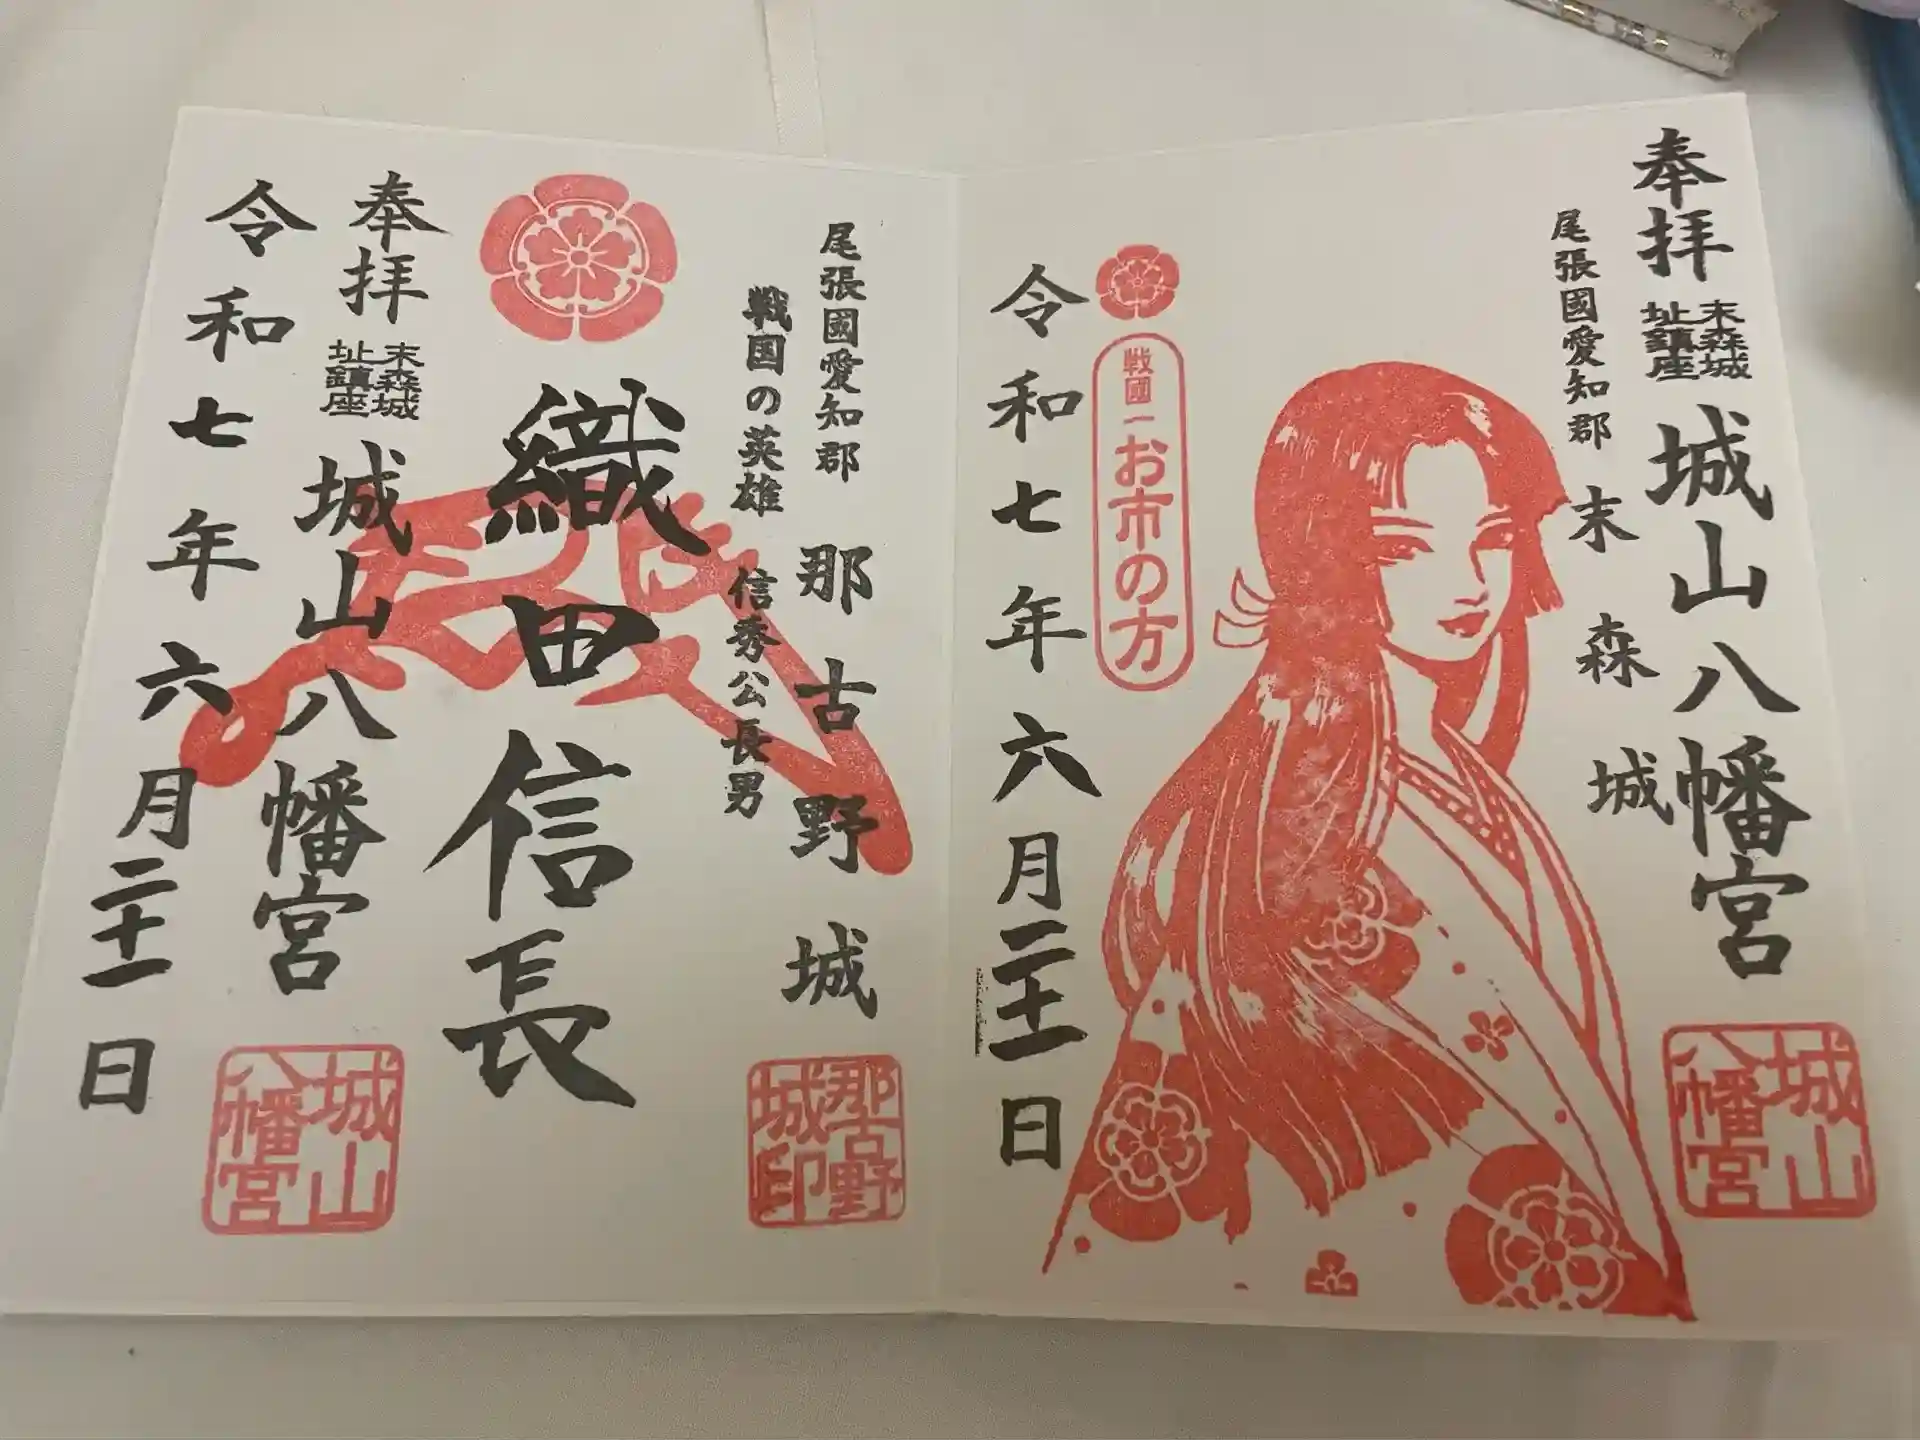 奉拝
末森城
址鎮座
城山八幡宮
城山
八幡宮
尾張國愛知郡
末森城
戦國一
お市の方
令和七年六月二十一日
尾張國愛知郡
那古野城
那古野
城印
戦国の英雄
信秀公長男
織田信長
奉拝
末森城
址鎮座
城山八幡宮
城山
八幡宮
令和七年六月二十一日